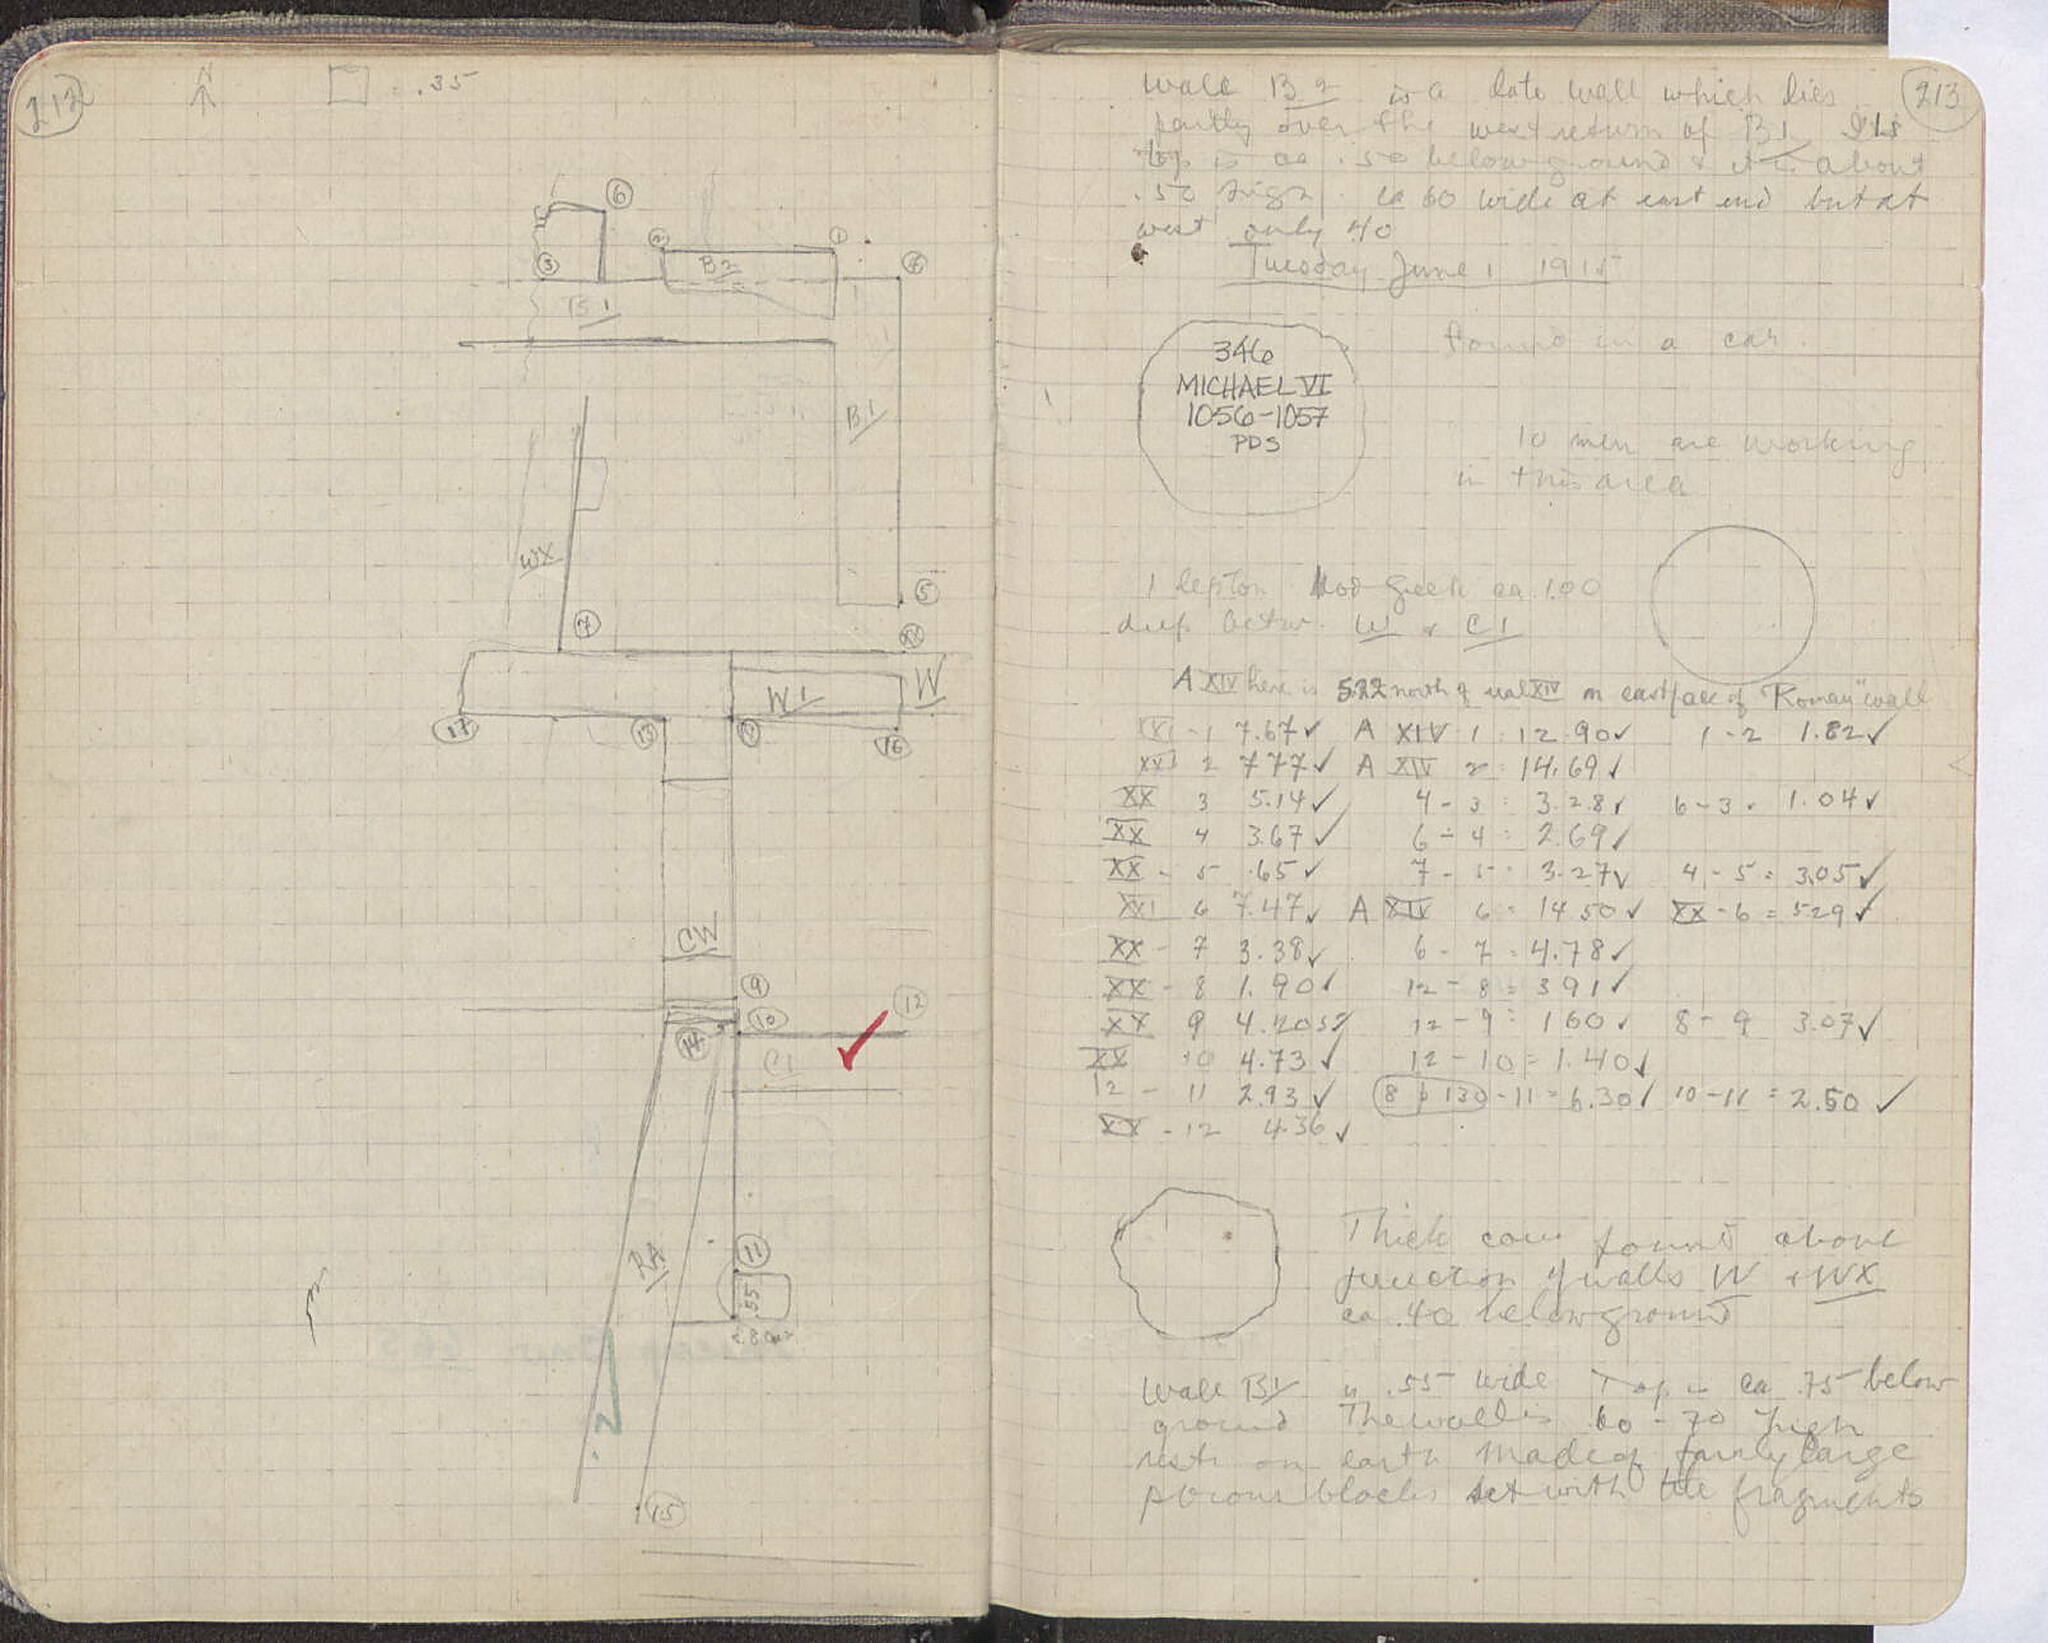 212
N
= .35
6
2
1
3
B2
4
B1
B1
WX
5
7
XX
W1
W
17
13
16
CW
9
12
10
14
C1
RA
11
.55
15
213
Wall B2 is a late wall which lies
partly over the west return of B1 Its
top is ca .50 below ground & it is about
.50 high. ca 60 wide at east end but at
west only 40
Tuesday June 1 1915
346
MICHAEL VI
1056-1057
PDS
found in a car.
10 men are working
in this area
1 lepton Mod Greek ca 1.00
deep betw. W & C1
A XIV here is 5.22 north of XIV on east face of "Roman" wall
XVI - 1 7.67✓ A XIV 1 = 12.90✓ 1-2 1.82✓
XVI 2 7.77✓ A XIV 2 = 14.69✓
XX 3 5.14✓ 4-3 = 3.28✓ 6-3 = 1.04✓
XX 4 3.67✓ 6-4 = 2.69✓
XX - 5 .65✓ 7-5 = 3.27✓ 4-5 = 3.05✓
XVI 6 7.47✓ A XIV 6 = 14.50✓ XX-6 = 5.29✓
XX - 7 3.38✓ 6-7 = 4.78✓
XX - 8 1.90✓ 12-8 = 3.91✓
XX 9 12-9 = 1.60✓ 8-9 3.07✓
XX 10 4.73✓ 12-10 = 1.40✓
12 - 11 2.93✓ 8 130 - 11 = 6.30✓ 10-11 = 2.50✓
XX - 12 4.36✓
Thick coin found above
junction of walls W & WX
ca .40 below ground
Wall B1 is .55 wide Top is ca .75 below
ground The wall is 60-70 high
rests on earth made of fairly large
porous blocks set with tile fragments